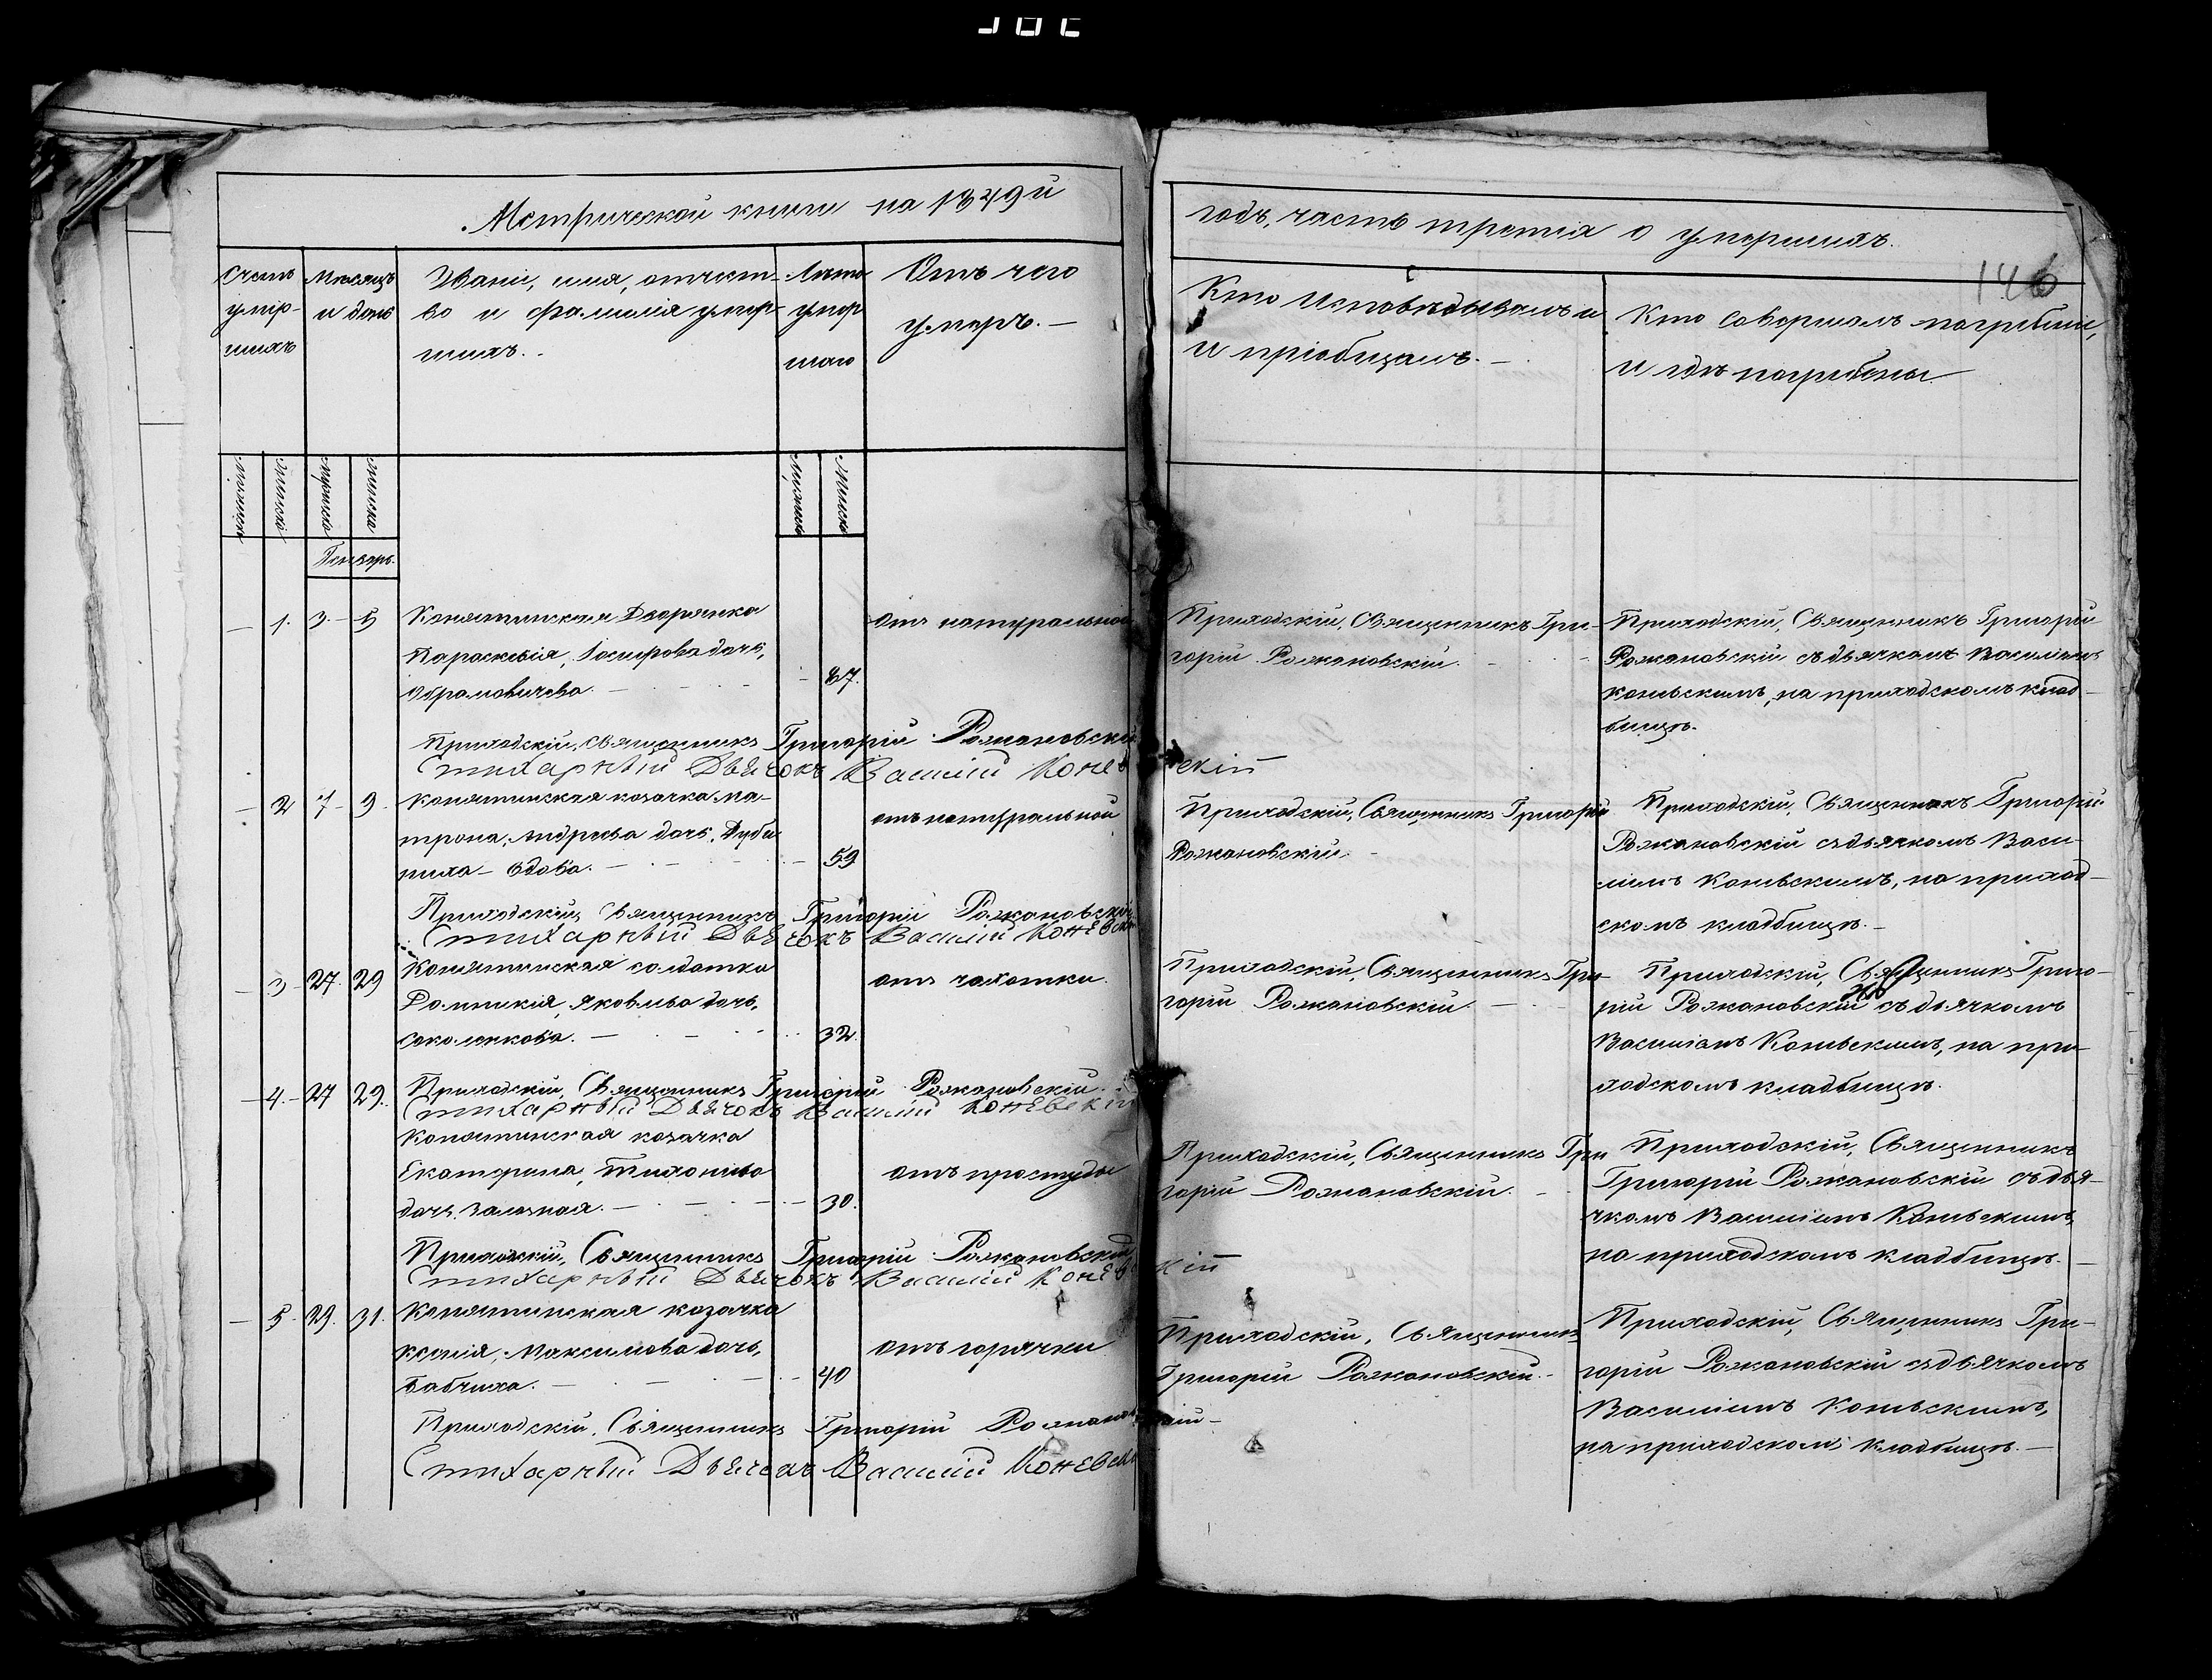 Метрической книги на 1849й
годъ, часть третія о умершихъ.
146
Счетъ умер-
шихъ
Месяцъ
и день
Званіе, имя, отчест-
во и фамилія умер-
шихъ.
Лета
умер
шаго
Отъ чего
умеръ. —
Кто исповедывалъ и
и пріобщалъ. —
Кто совершалъ погребеніе,
и где погребены
Генварь.
— 1. 3. — 5
Конятинская Дворянка
Параскевія, Іосифова дочь,
Абрамовичева. —
87.
отъ натуральной
Приходскій, Священникъ Гри-
горій Рожановскій.
Приходскій, Священникъ Григорій
Рожановскій съ дьячкомъ Василіемъ
Коневскимъ, на приходскомъ клад-
бище.
Приходскій, Священникъ Григорій Рожановскій
Стихарный Дьячокъ Василій Коневскій
— 2 7 — 9.
Конятинская козачка Ма-
трона, Андреева дочь, Дуби
ниха — вдова. —
59
отъ натуральной
Приходскій, Священникъ Григорій
Рожановскій. —
Приходскій, Священникъ Григорій
Рожановскій съ дьячкомъ Васи-
ліемъ Коневскимъ, на приход-
скомъ кладбище. —
Приходскій, Священникъ Григорій Рожановскій
Стихарный Дьячокъ Василій Коневскій
— 3 — 27. 29
Конятинская солдатка
Яковлева дочь,
Соколенкова. —
32.
отъ чахотки.
Приходскій, Священникъ Гри-
горій Рожановскій. —
Приходскій, Священникъ Григо-
рій Рожановскій съ дьячкомъ
Василіемъ Коневскимъ, на при-
ходскомъ кладбище.
— 4. — 27 29.
Приходскій, Священникъ Григорій Рожановскій.
Стихарный Дьячокъ Василій Коневскій
Конятинская козачка
Екатерина, Тихонова
дочь Залозная. —
30.
отъ простуды
Приходскій, Священникъ Гри
горій Рожановскій. —
Приходскій, Священникъ
Григорій Рожановскій съ дья-
чкомъ Василіемъ Коневскимъ,
на приходскомъ кладбище. —
Приходскій, Священникъ Григорій Рожановскій
Стихарный Дьячокъ Василій Коневскій
— 5 — 29. 31.
Конятинская козачка
Ксенія, Максимова дочь,
Бабчиха. —
40
отъ горячки
Приходскій, Священникъ
Григорій Рожановскій. —
Приходскій, Священникъ Гри-
горій Рожановскій съ дьячкомъ
Василіемъ Коневскимъ,
на приходскомъ кладбище. —
Приходскій, Священникъ Григорій Рожановскій —
Стихарный Дьячокъ Василій Коневскій